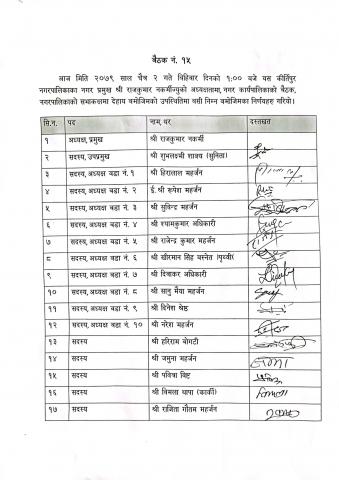 बैठक नं. १५
आज मिति २०७९ साल चैत्र २ गते बिहिबार दिनको १:०० बजे यस कीर्तिपुर
नगरपालिकाका नगर प्रमुख श्री राजकुमार नकर्मीज्युको अध्यक्षतामा, नगर कार्यपालिकाको बैठक,
नगरपालिकाको सभाकक्षमा देहाय बमोजिमको उपस्थितिमा बसी निम्न बमोजिमका निर्णयहरु गरियो।
सि.न. पद नाम, थर दस्तखत
१ अध्यक्ष, प्रमुख श्री राजकुमार नकर्मी
२ सदस्य, उपप्रमुख श्री शुभलक्ष्मी शाक्य (सुनिता)
३ सदस्य, अध्यक्ष वडा नं. १ श्री हिरालाल महर्जन
४ सदस्य, अध्यक्ष वडा नं. २ ई.श्री रुपेश महर्जन
५ सदस्य, अध्यक्ष वडा नं. ३ श्री सुविन्द्र महर्जन
६ सदस्य, अध्यक्ष वडा नं. ४ श्री श्यामकुमार अधिकारी
७ सदस्य, अध्यक्ष वडा नं. ५ श्री राजेन्द्र कुमार महर्जन
८ सदस्य, अध्यक्ष वडा नं. ६ श्री खीरमान सिंह बस्नेत (पृथ्वी)
९ सदस्य, अध्यक्ष वडा नं. ७ श्री दिवाकर अधिकारी
१० सदस्य, अध्यक्ष वडा नं. ८ श्री सानु मैया महर्जन
११ सदस्य, अध्यक्ष वडा नं. ९ श्री दिनेश श्रेष्ठ
१२ सदस्य, अध्यक्ष वडा नं. १० श्री नरेश महर्जन
१३ सदस्य श्री हरिराम बोगटी
१४ सदस्य श्री जमुना महर्जन
१५ सदस्य श्री पविषा विष्ट
१६ सदस्य श्री विमला थापा (कार्की) विमला
१७ सदस्य श्री राजिता गौतम महर्जन